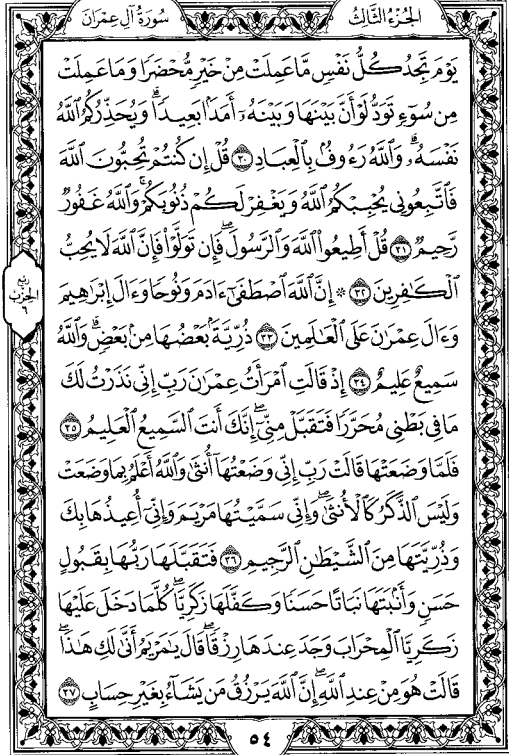 الجُزْءُ الثَّالِثُ
سُورَةُ آلِ عِمْرَانَ
يَوْمَ تَجِدُ كُلُّ نَفْسٍ مَّا عَمِلَتْ مِنْ خَيْرٍ مُّحْضَرًا وَمَا عَمِلَتْ
مِن سُوٓءٍ تَوَدُّ لَوْ أَنَّ بَيْنَهَا وَبَيْنَهُۥٓ أَمَدَۢا بَعِيدًاۗ وَيُحَذِّرُكُمُ ٱللَّهُ
نَفْسَهُۥۗ وَٱللَّهُ رَءُوفُۢ بِٱلْعِبَادِ ٣٠ قُلْ إِن كُنتُمْ تُحِبُّونَ ٱللَّهَ
فَٱتَّبِعُونِي يُحْبِبْكُمُ ٱللَّهُ وَيَغْفِرْ لَكُمْ ذُنُوبَكُمْۗ وَٱللَّهُ غَفُورٌ
رَّحِيمٌ ٣١ قُلْ أَطِيعُوا۟ ٱللَّهَ وَٱلرَّسُولَۖ فَإِن تَوَلَّوْا۟ فَإِنَّ ٱللَّهَ لَا يُحِبُّ
ٱلْكَٰفِرِينَ ٣٢ ۞ إِنَّ ٱللَّهَ ٱصْطَفَىٰٓ ءَادَمَ وَنُوحًا وَءَالَ إِبْرَٰهِيمَ
وَءَالَ عِمْرَٰنَ عَلَى ٱلْعَٰلَمِينَ ٣٣ ذُرِّيَّةَۢ بَعْضُهَا مِنۢ بَعْضٍۗ وَٱللَّهُ
سَمِيعٌ عَلِيمٌ ٣٤ إِذْ قَالَتِ ٱمْرَأَتُ عِمْرَٰنَ رَبِّ إِنِّي نَذَرْتُ لَكَ
مَا فِي بَطْنِي مُحَرَّرًا فَتَقَبَّلْ مِنِّيٓۖ إِنَّكَ أَنتَ ٱلسَّمِيعُ ٱلْعَلِيمُ ٣٥
فَلَمَّا وَضَعَتْهَا قَالَتْ رَبِّ إِنِّي وَضَعْتُهَآ أُنثَىٰ وَٱللَّهُ أَعْلَمُ بِمَا وَضَعَتْ
وَلَيْسَ ٱلذَّكَرُ كَٱلْأُنثَىٰۖ وَإِنِّي سَمَّيْتُهَا مَرْيَمَ وَإِنِّيٓ أُعِيذُهَا بِكَ
وَذُرِّيَّتَهَا مِنَ ٱلشَّيْطَٰنِ ٱلرَّجِيمِ ٣٦ فَتَقَبَّلَهَا رَبُّهَا بِقَبُولٍ
حَسَنٍ وَأَنۢبَتَهَا نَبَاتًا حَسَنًا وَكَفَّلَهَا زَكَرِيَّاۖ كُلَّمَا دَخَلَ عَلَيْهَا
زَكَرِيَّا ٱلْمِحْرَابَ وَجَدَ عِندَهَا رِزْقًاۖ قَالَ يَٰمَرْيَمُ أَنَّىٰ لَكِ هَٰذَاۖ
قَالَتْ هُوَ مِنْ عِندِ ٱللَّهِۖ إِنَّ ٱللَّهَ يَرْزُقُ مَن يَشَآءُ بِغَيْرِ حِسَابٍ ٣٧
ربع
الحزب
٦
٥٤